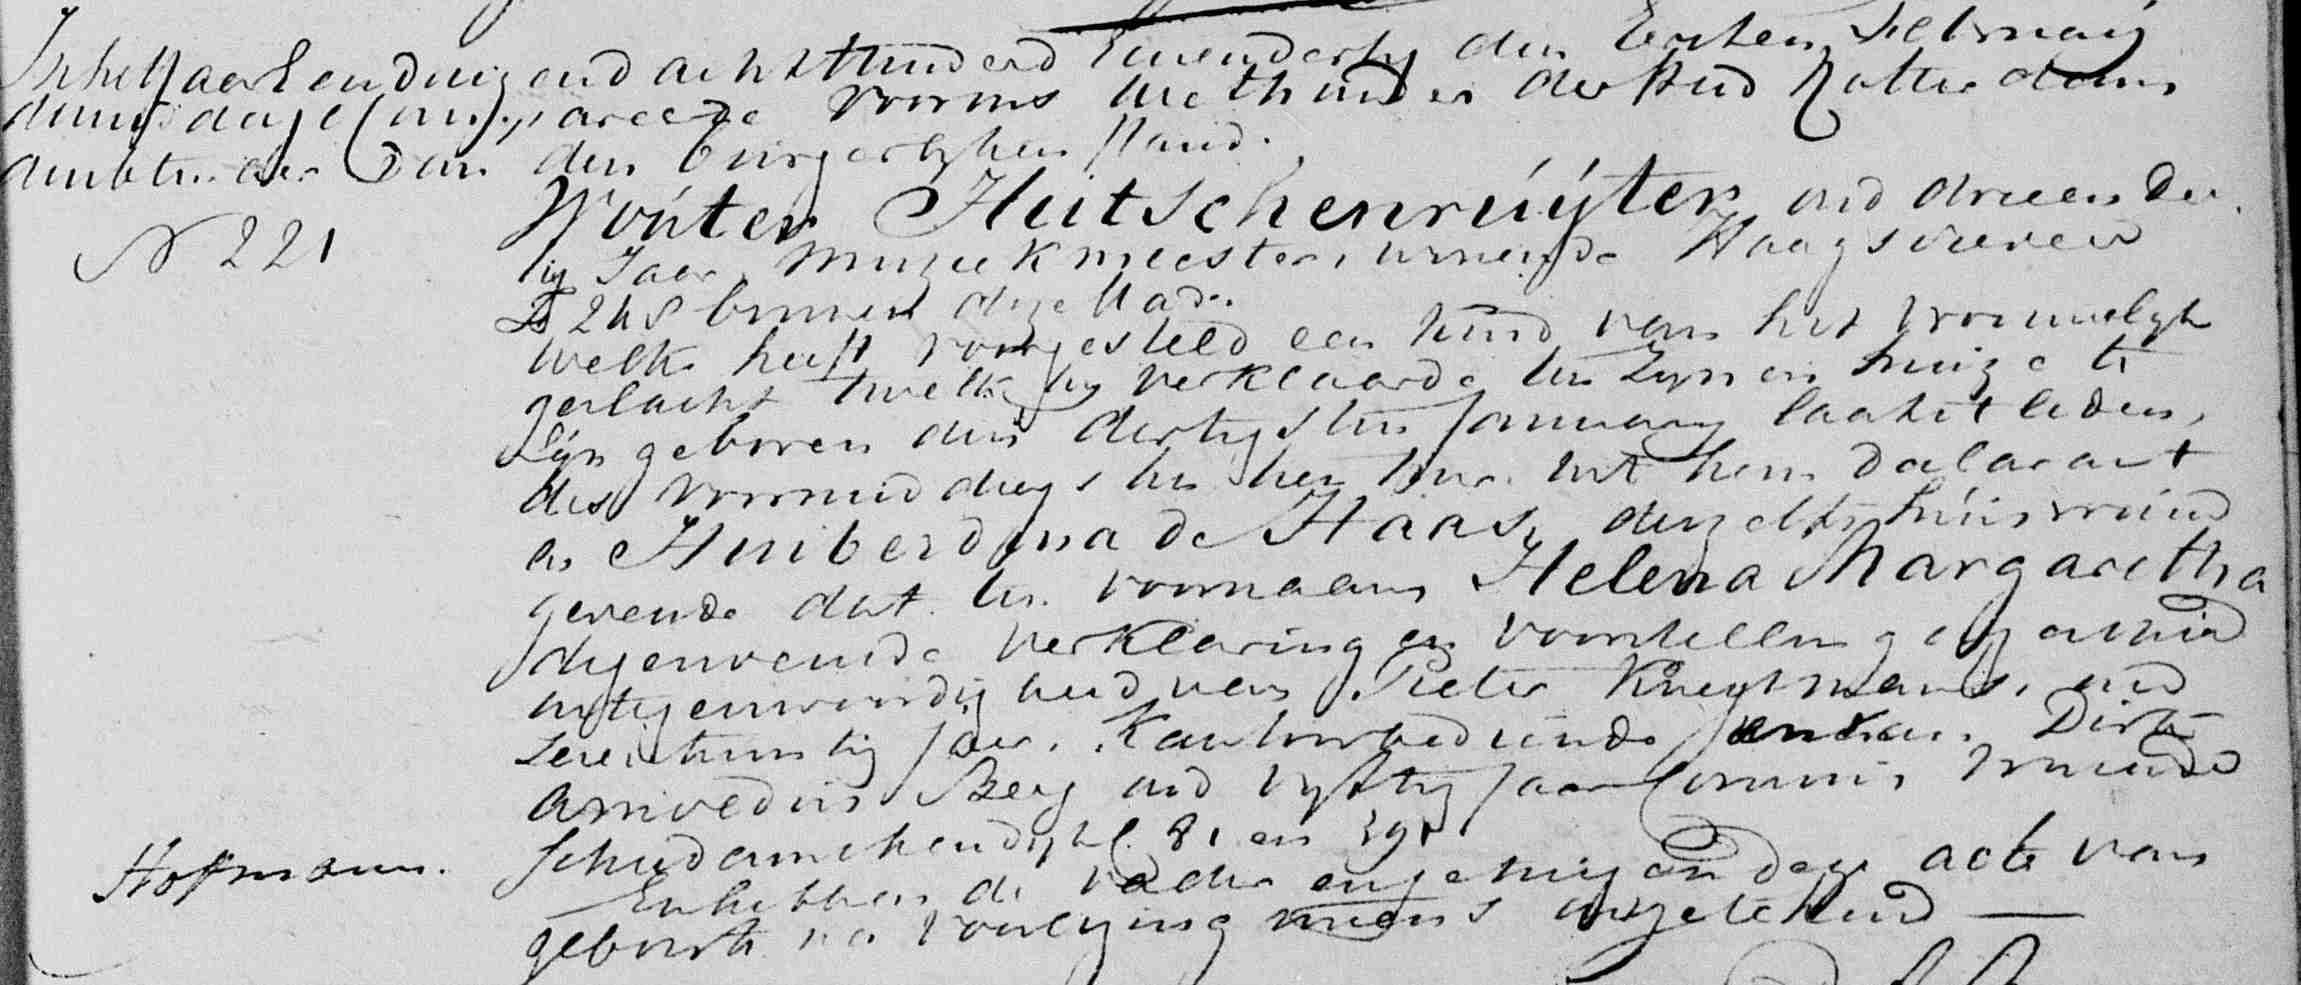 In het Jaar Eenduizend achthonderd Eenendertig den Eersten February
dinsdage Compareerde voor ons Wethouder der Stad Rotterdam
Ambtenaar van den burgerlyken stand.
N 221
Wouter Hutschenruyter oud drieender
tig Jaar, Muziekmeester, wonende Haagscheveer
N 248 binnen deze stad.
welke heeft voorgesteld een kind van het vrouwelyk
geslacht twelk hy verklaarde ten zynen huize te
Zyn geboren den dertigsten January laatstleden,
des voormiddags ten uur uit hem declarant
en Huiberdina de Haas, deszelfs huisvrouw
gevende dat ten voornaam Helena Margaretha
dezenvende verklaring en voorstelling geschied
in tegenwoordigheid van Pieter oud
zevenentwintig Jaar, Kantoorbediende en van Dirk
Berg oud vyftig Jaar Commis wonende
Schiedamschendyk 81 en 391
Hofmann.
En hebben de vader en getuigen deze acte van
geboorte na voorlezing met ons geteekend —